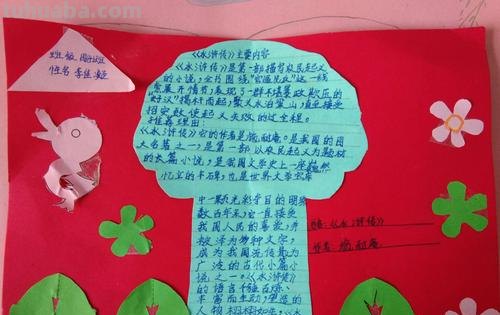 tuhuaba.com
《水浒传》主要内容
《水浒传》是第一部描写农民起义
的小说,全书围绕"官逼民反"这一线
索展开情节,表现了一群不堪暴政欺压的
"好汉"揭竿而起,聚义水泊梁山,直至接受
招安致使起义失败的全过程。
推荐理由:
《水浒传》它的作者是施耐庵。是我国的四
大名著之一,是第一部以农民起义为题材
的长篇小说,是我国文学史上一座巍然
屹立的丰碑,也是世界文学宝库
中一颗光彩夺目的明珠
数百年来,它一直接受
我国人民的喜爱,并
被译为多种文字,
成为我国流传最为
广泛的古代小说
之一。《水浒传》
的语言千锤百炼、
丰富而生动,塑造的
人物栩栩如生。《水
班级
姓名 李佳凝
书名:《水浒传》
作者:施耐庵